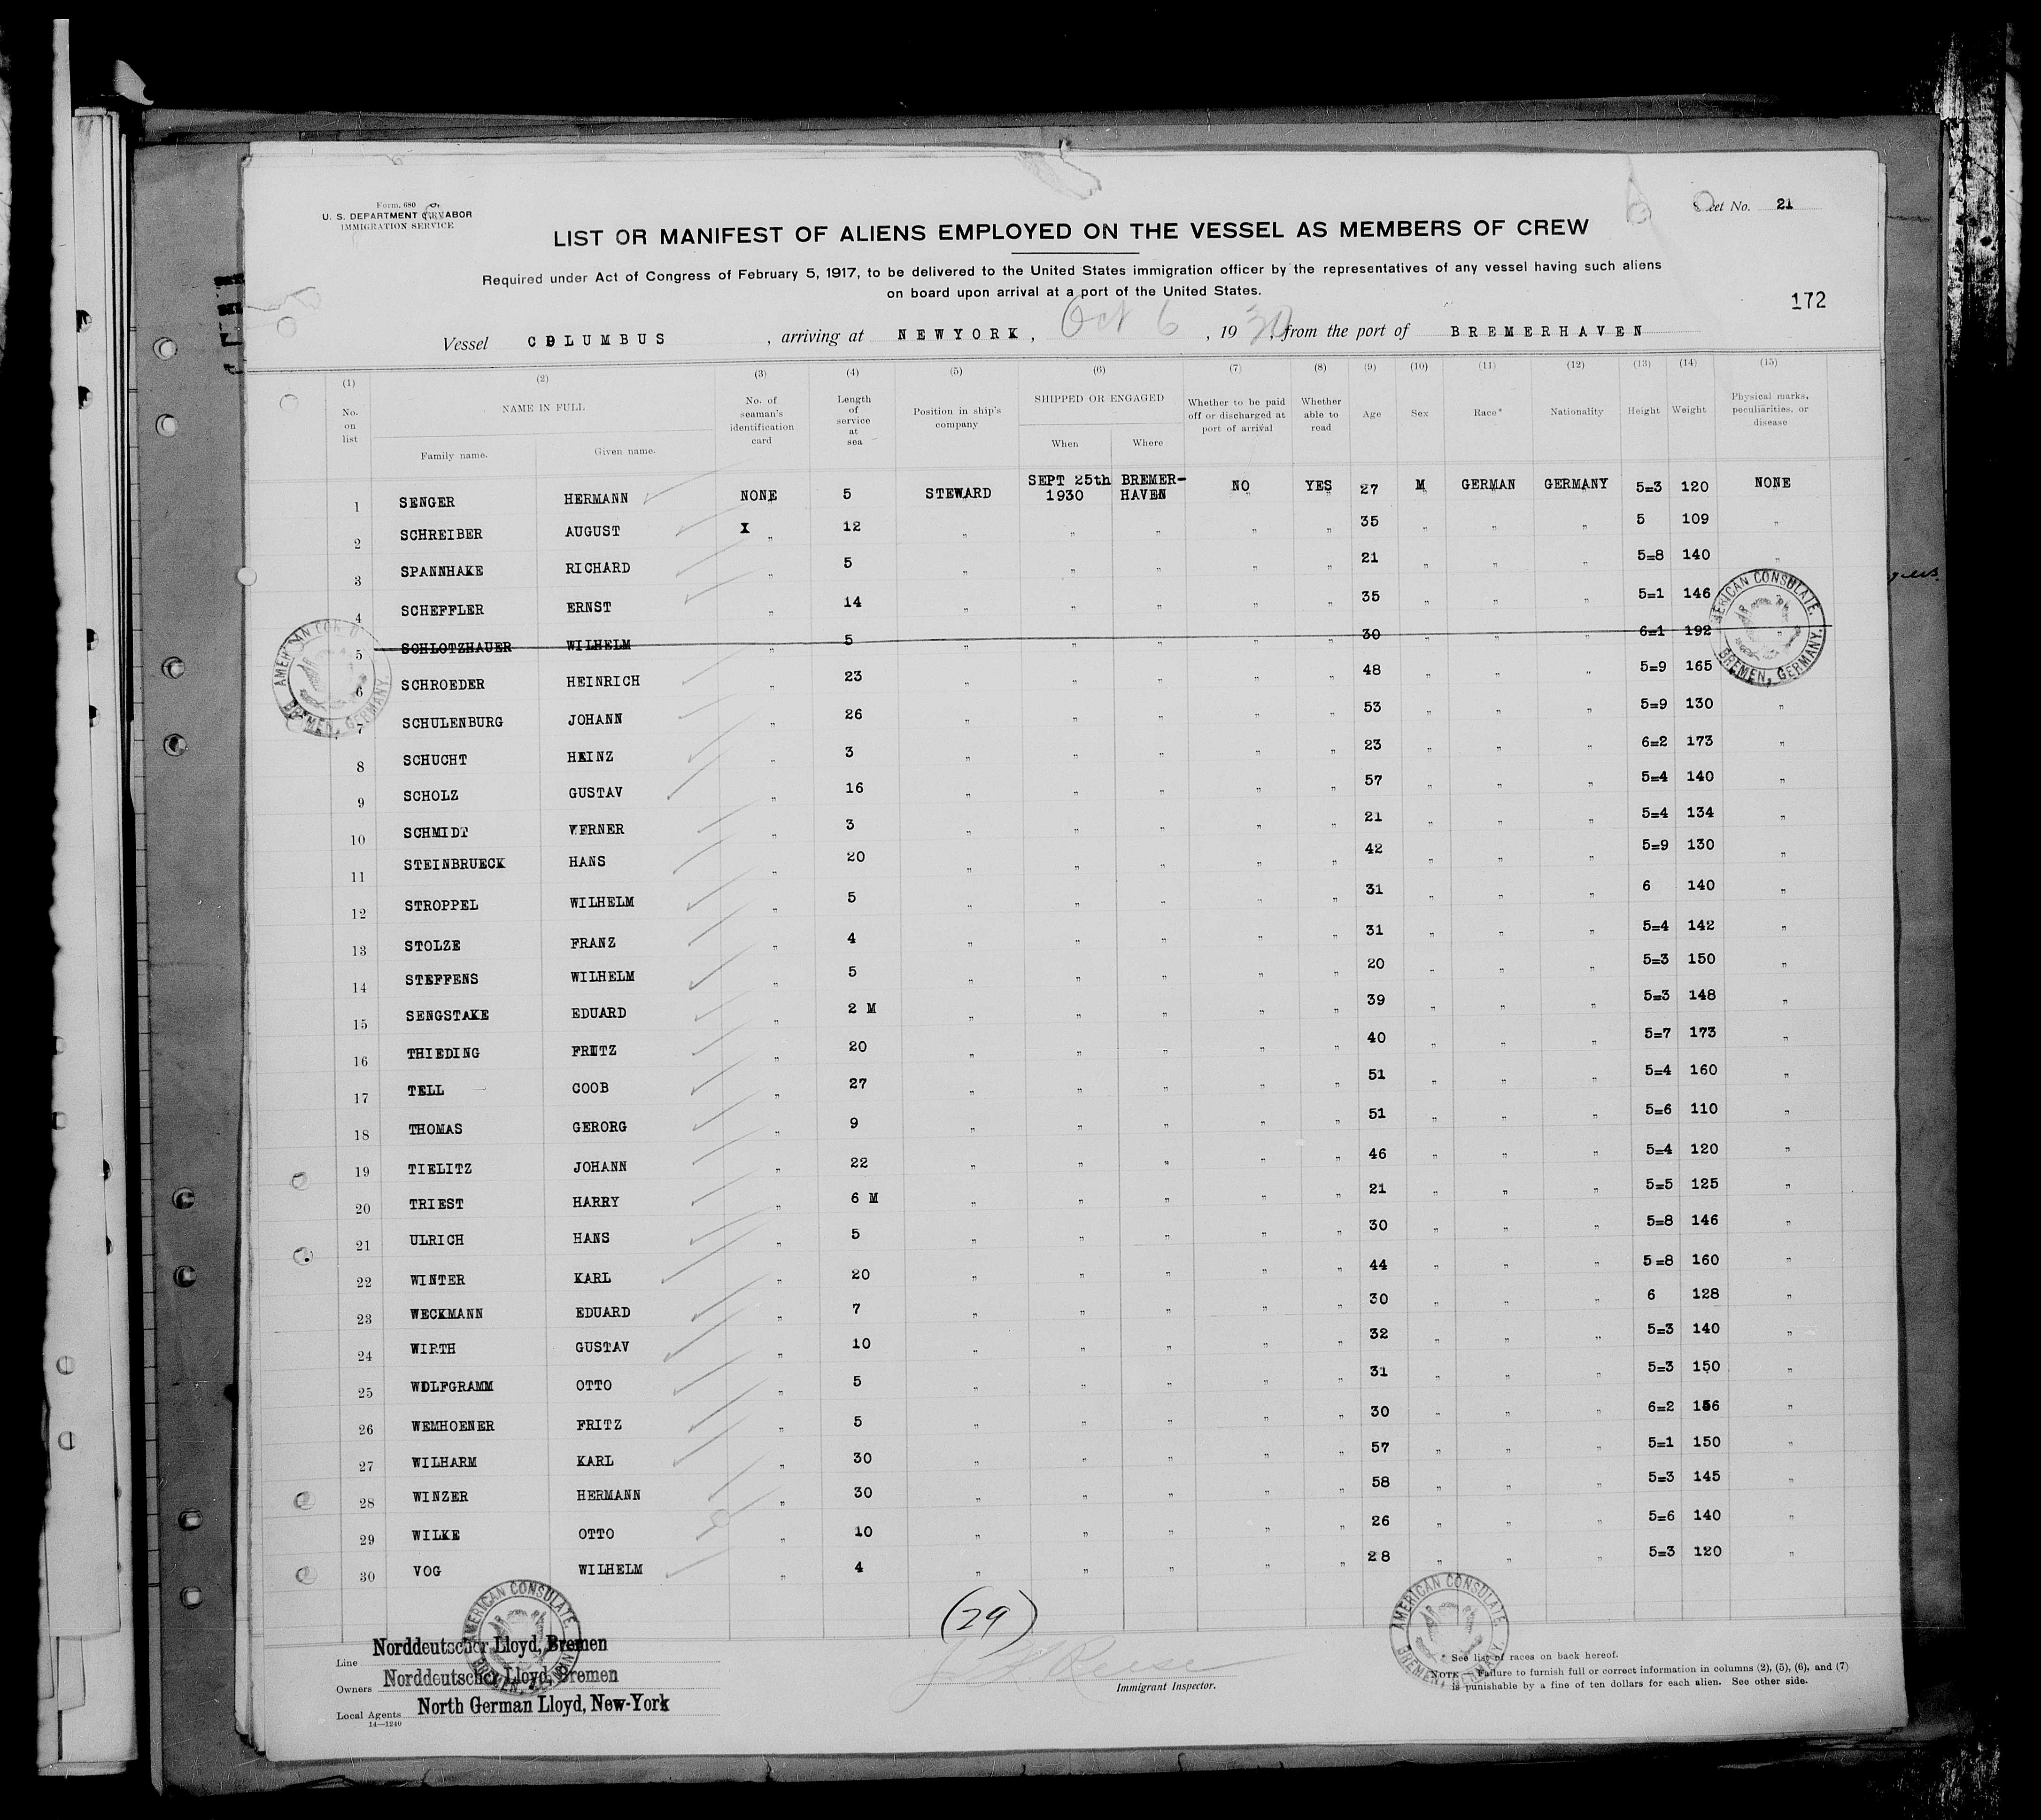 Form 680
U. S. DEPARTMENT OF LABOR
IMMIGRATION SERVICE
Sheet No. 21
LIST OR MANIFEST OF ALIENS EMPLOYED ON THE VESSEL AS MEMBERS OF CREW
Required under Act of Congress of February 5, 1917, to be delivered to the United States immigration officer by the representatives of any vessel having such aliens
on board upon arrival at a port of the United States.
172
Vessel COLUMBUS , arriving at NEWYORK , Oct 6 , 1930, from the port of BREMERHAVEN
(1) (2) (3) (4) (5) (6) (7) (8) (9) (10) (11) (12) (13) (14) (15)
No. on list NAME IN FULL Family name. Given name. No. of seaman's identification card Length of service at sea Position in ship's company SHIPPED OR ENGAGED When Where Whether to be paid off or discharged at port of arrival Whether able to read Age Sex Race* Nationality Height Weight Physical marks, peculiarities, or disease
1 SENGER HERMANN NONE 5 STEWARD SEPT 25th 1930 BREMER-HAVEN NO YES 27 M GERMAN GERMANY 5=3 120 NONE
2 SCHREIBER AUGUST X „ 12 „ „ „ „ „ 35 „ „ „ 5 109 „
3 SPANNHAKE RICHARD „ 5 „ „ „ „ „ 21 „ „ „ 5=8 140 „
4 SCHEFFLER ERNST „ 14 „ „ „ „ „ 35 „ „ „ 5=1 146
5 SCHLOTZHAUER WILHELM „ 5 „ „ „ „ „ 30 „ „ „ 6=1 192 „
6 SCHROEDER HEINRICH „ 23 „ „ „ „ „ 48 „ „ „ 5=9 165
7 SCHULENBURG JOHANN „ 26 „ „ „ „ „ 53 „ „ „ 5=9 130 „
8 SCHUCHT HEINZ „ 3 „ „ „ „ „ 23 „ „ „ 6=2 173 „
9 SCHOLZ GUSTAV „ 16 „ „ „ „ „ 57 „ „ „ 5=4 140 „
10 SCHMIDT WERNER „ 3 „ „ „ „ „ 21 „ „ „ 5=4 134 „
11 STEINBRUECK HANS „ 20 „ „ „ „ „ 42 „ „ „ 5=9 130 „
12 STROPPEL WILHELM „ 5 „ „ „ „ „ 31 „ „ „ 6 140 „
13 STOLZE FRANZ „ 4 „ „ „ „ „ 31 „ „ „ 5=4 142 „
14 STEFFENS WILHELM „ 5 „ „ „ „ „ 20 „ „ „ 5=3 150 „
15 SENGSTAKE EDUARD „ 2 M „ „ „ „ „ 39 „ „ „ 5=3 148 „
16 THIEDING FRITZ „ 20 „ „ „ „ „ 40 „ „ „ 5=7 173 „
17 TELL COOB „ 27 „ „ „ „ „ 51 „ „ „ 5=4 160 „
18 THOMAS GERORG „ 9 „ „ „ „ „ 51 „ „ „ 5=6 110 „
19 TIELITZ JOHANN „ 22 „ „ „ „ „ 46 „ „ „ 5=4 120 „
20 TRIEST HARRY „ 6 M „ „ „ „ „ 21 „ „ „ 5=5 125 „
21 ULRICH HANS „ 5 „ „ „ „ „ 30 „ „ „ 5=8 146 „
22 WINTER KARL „ 20 „ „ „ „ „ 44 „ „ „ 5=8 160 „
23 WECKMANN EDUARD „ 7 „ „ „ „ „ 30 „ „ „ 6 128 „
24 WIRTH GUSTAV „ 10 „ „ „ „ „ 32 „ „ „ 5=3 140 „
25 WOLFGRAMM OTTO „ 5 „ „ „ „ „ 31 „ „ „ 5=3 150 „
26 WEMHOENER FRITZ „ 5 „ „ „ „ „ 30 „ „ „ 6=2 156 „
27 WILHARM KARL „ 30 „ „ „ „ „ 57 „ „ „ 5=1 150 „
28 WINZER HERMANN „ 30 „ „ „ „ „ 58 „ „ „ 5=3 145 „
29 WILKE OTTO „ 10 „ „ „ „ „ 26 „ „ „ 5=6 140 „
30 VOG WILHELM „ 4 „ „ „ „ „ 28 „ „ „ 5=3 120 „
AMERICAN CONSULATE
BREMEN, GERMANY.
AMERICAN CONSULATE
BREMEN, GERMANY.
AMERICAN CONSULATE
BREMEN, GERMANY.
AMERICAN CONSULATE
BREMEN, GERMANY.
(29)
Line Norddeutscher Lloyd, Bremen
Owners Norddeutscher Lloyd, Bremen
Local Agents North German Lloyd, New-York
14—1240
Reese
Immigrant Inspector.
* See list of races on back hereof.
NOTE.—Failure to furnish full or correct information in columns (2), (5), (6), and (7)
is punishable by a fine of ten dollars for each alien. See other side.